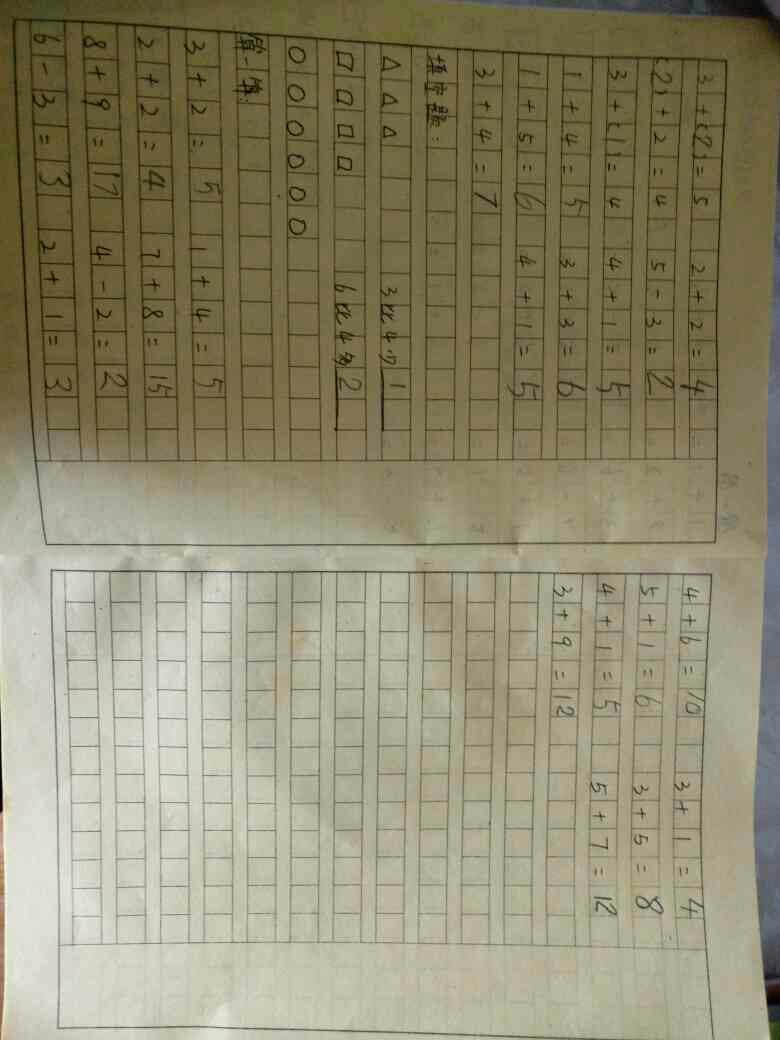 3+(2)=5 2+2=4
(2)+2=4 5-3=2
3+(1)=4 4+1=5
1+4=5 3+3=6
1+5=6 4+1=5
3+4=7
填空题:
△△△ 3比4少1
□□□□ 6比4多2
○○○○○○
算一算:
3+2=5 1+4=5
2+2=4 7+8=15
8+9=17 4-2=2
6-3=3 2+1=3
4+6=10 3+1=4
5+1=6 3+5=8
4+1=5 5+7=12
3+9=12